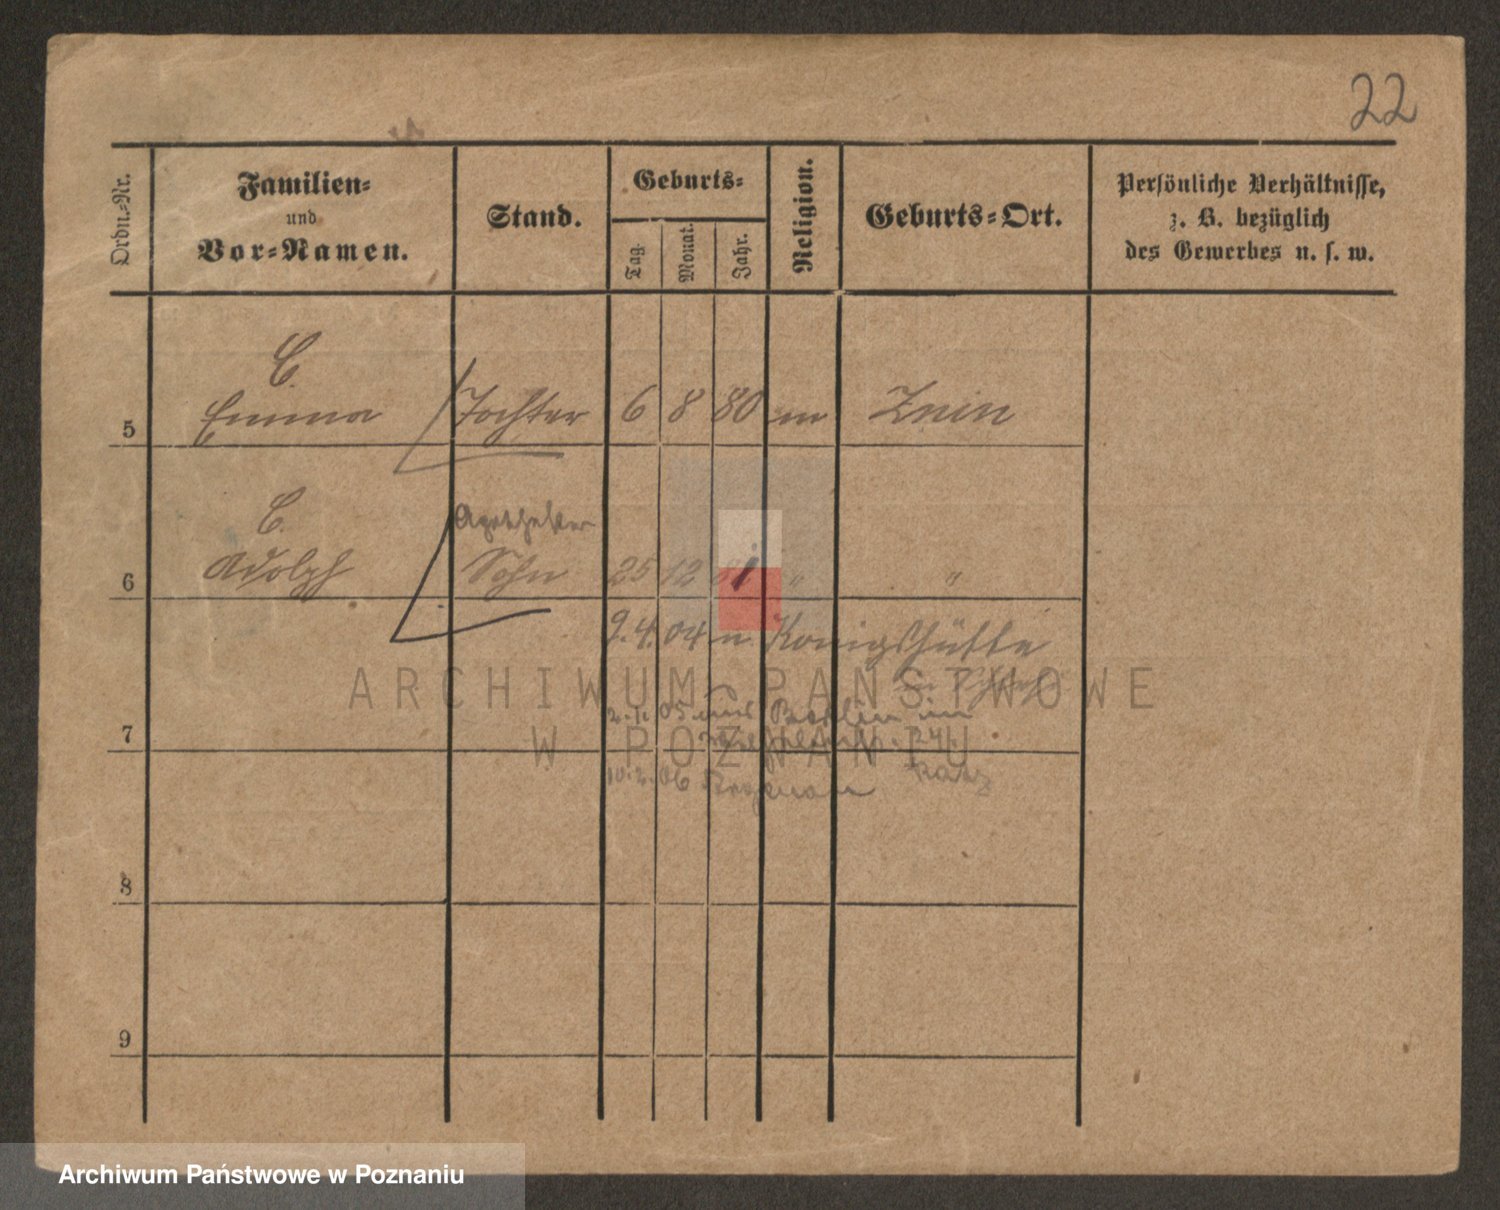 22
Ordn.-Nr.
Familien-
und
Vor-Namen.
Stand.
Geburts-
Tag.
Monat.
Jahr.
Religion.
Geburts-Ort.
Persönliche Verhältnisse,
z. B. bezüglich
des Gewerbes u. s. w.
C.
5 Emma Tochter 6 8 80 m Znin
C. Apotheker
6 Adolph Sohn 25 12 " "
9.4.04 n. Königshütte
ARCHIWUM PAŃSTWOWE
2.1.05 aus Berlin
W POZNANIU
7
10.2.06
8
9
Archiwum Państwowe w Poznaniu